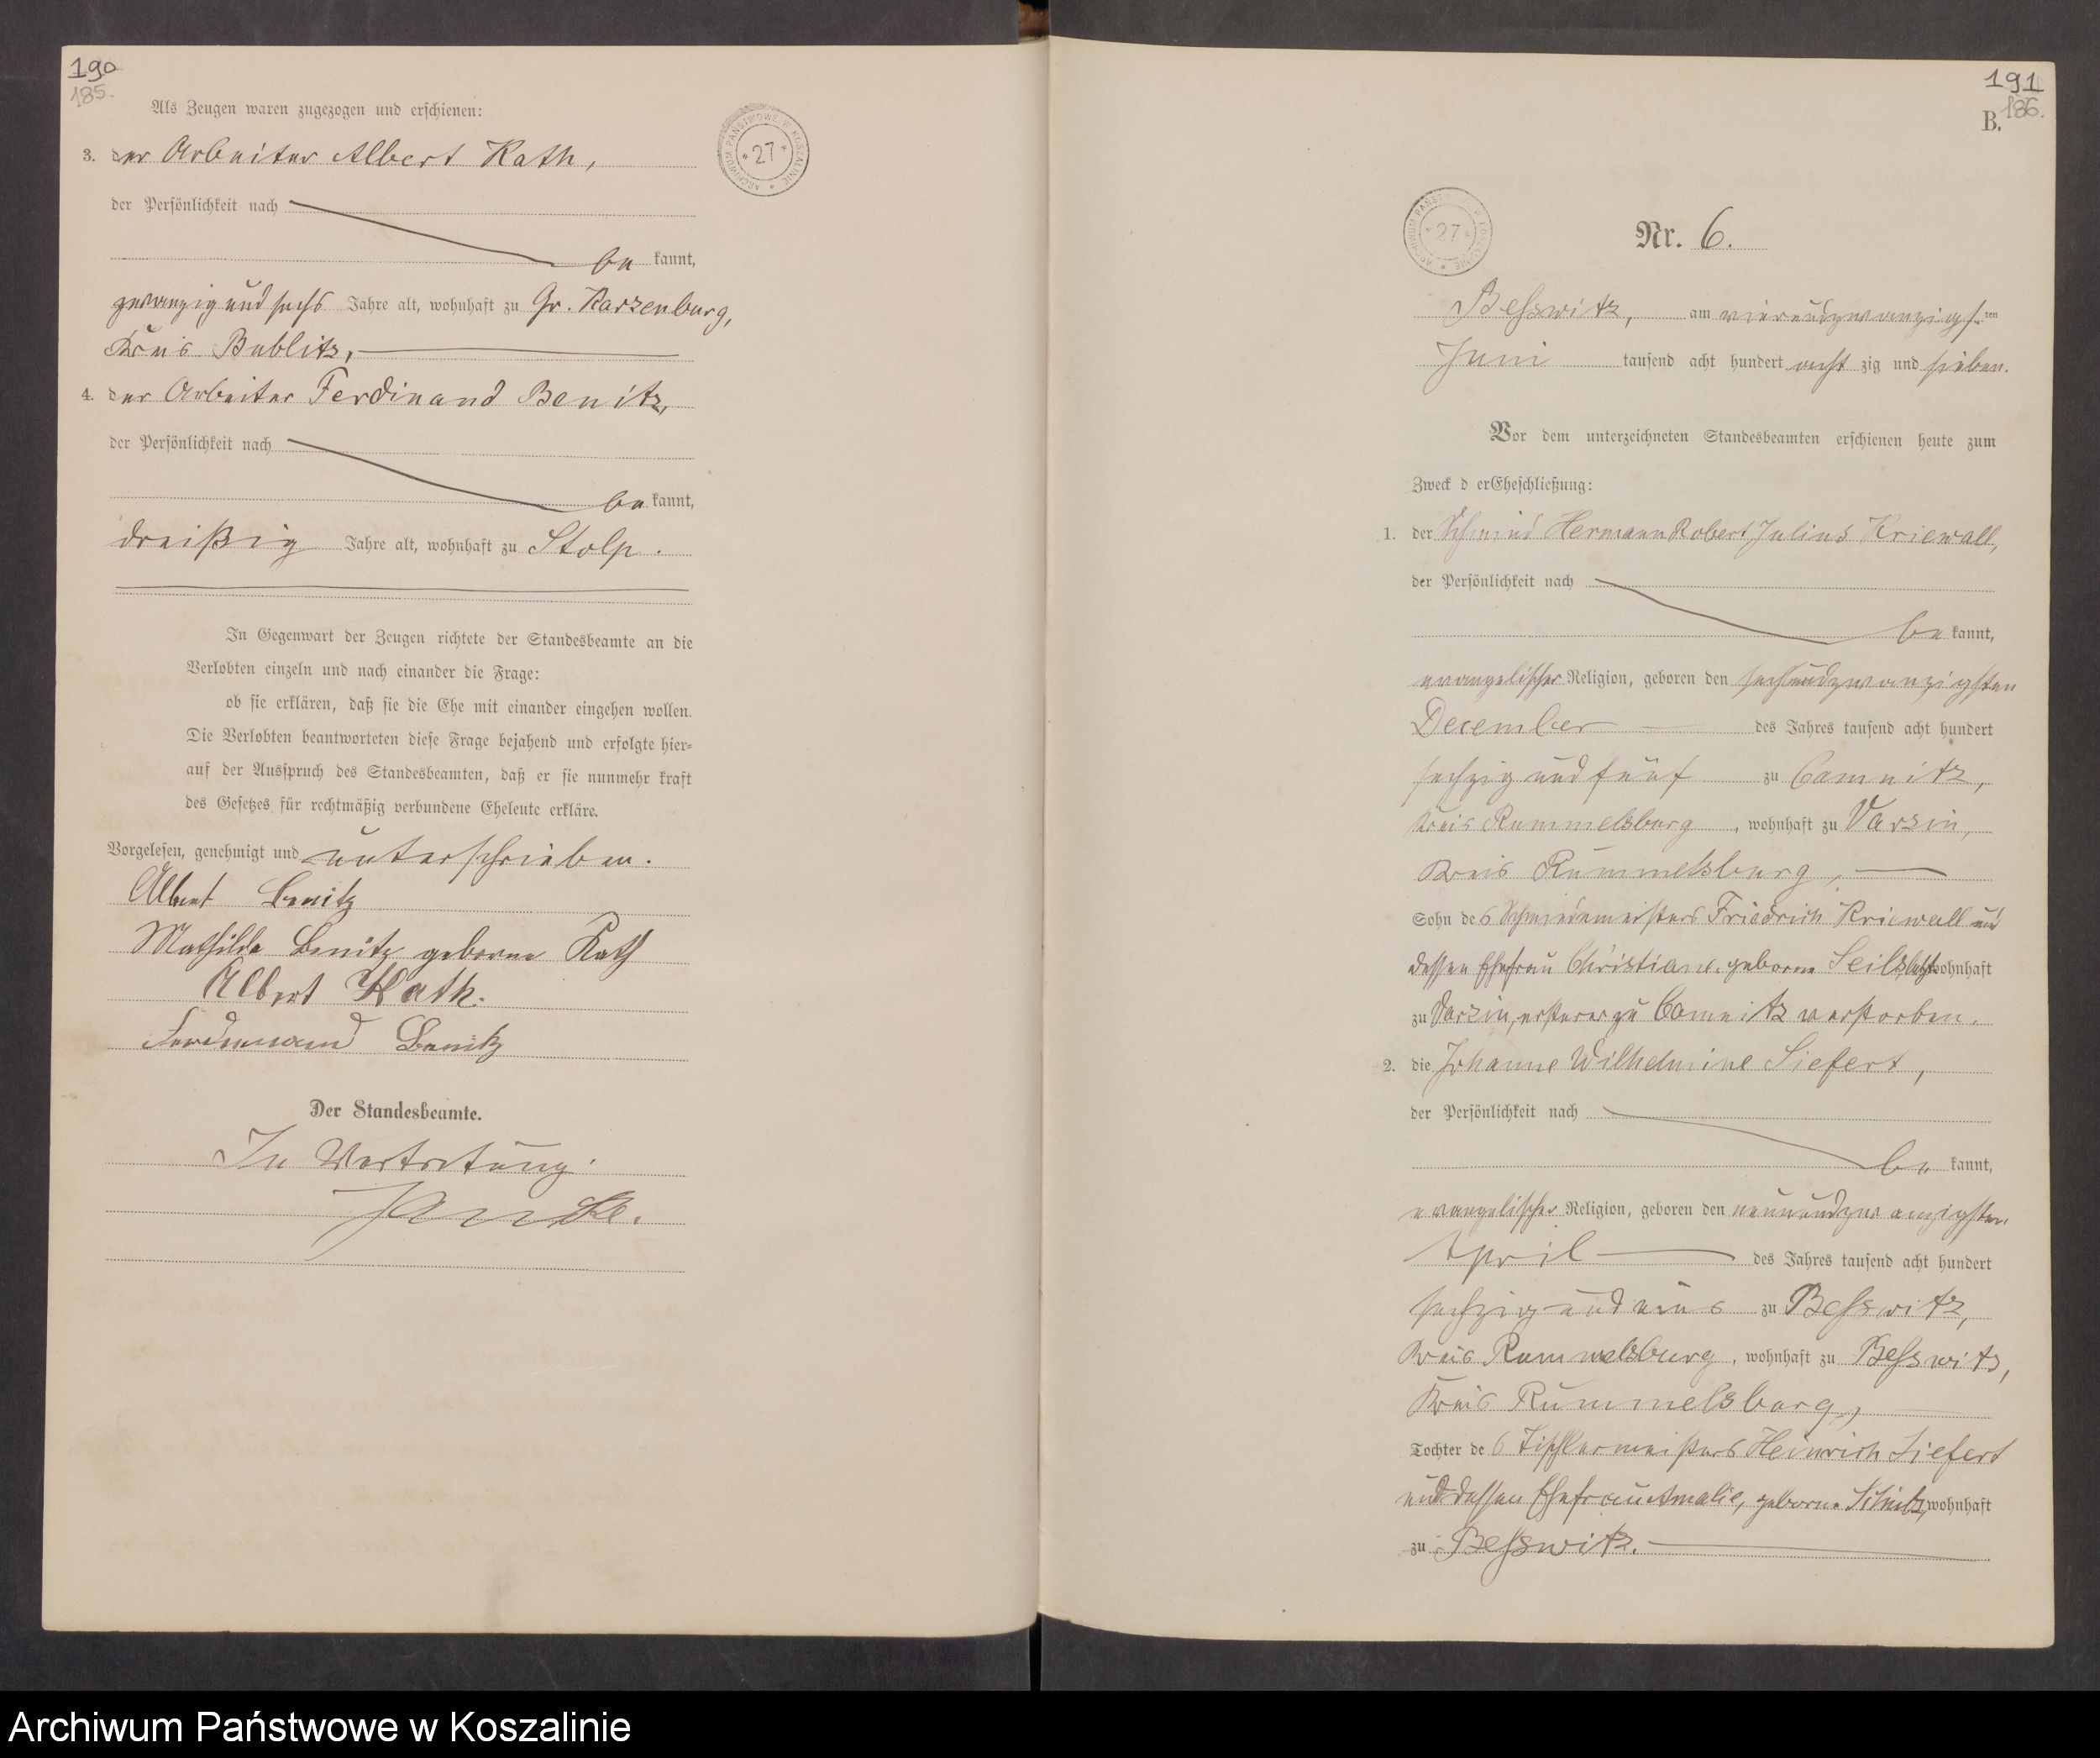 190
185.
Als Zeugen waren zugezogen und erschienen:
3. der Arbeiter Albert Kath,
der Persönlichkeit nach
be kannt,
zwanzig und sechs Jahre alt, wohnhaft zu Gr. Karzenburg,
Kreis Bublitz,
4. der Arbeiter Ferdinand Benitz,
der Persönlichkeit nach
be kannt,
dreißig Jahre alt, wohnhaft zu Stolp.
In Gegenwart der Zeugen richtete der Standesbeamte an die
Verlobten einzeln und nach einander die Frage:
ob sie erklären, daß sie die Ehe mit einander eingehen wollen.
Die Verlobten beantworteten diese Frage bejahend und erfolgte hier-
auf der Ausspruch des Standesbeamten, daß er sie nunmehr kraft
des Gesetzes für rechtmäßig verbundene Eheleute erkläre.
Vorgelesen, genehmigt und unterschrieben.
Albert Benitz
Mathilde Benitz geborne Kath
Albert Kath.
Ferdinand Benitz
Der Standesbeamte.
In Vertretung.
ARCHIWUM PAŃSTWOWE W KOSZALINIE
* 27 *
191
186.
B.
ARCHIWUM PAŃSTWOWE W KOSZALINIE
* 27 *
Nr. 6.
Besswitz, am vierundzwanzigsten
Juni tausend acht hundert acht zig und sieben.
Vor dem unterzeichneten Standesbeamten erschienen heute zum
Zweck d erEheschließung:
1. der Schmied Hermann Robert Julius Kriewall,
der Persönlichkeit nach
be kannt,
evangelischer Religion, geboren den sechsundzwanzigsten
December des Jahres tausend acht hundert
sechzig und fünf zu Camnitz,
Kreis Rummelsburg, wohnhaft zu Varzin,
Kreis Rummelsburg,
Sohn des Schmiedemeisters Friedrich Kriewall und
dessen Ehefrau Christiane, geborne wohnhaft
zu Varzin, ersterer zu Camnitz verstorben.
2. die Johanne Wilhelmine Siefert,
der Persönlichkeit nach
be kannt,
evangelischer Religion, geboren den neunundzwanzigsten
April des Jahres tausend acht hundert
sechzig und eins zu Besswitz,
Kreis Rummelsburg, wohnhaft zu Besswitz,
Kreis Rummelsburg,
Tochter des Tischlermeisters Heinrich Siefert
und dessen Ehefrau Amalie, geborne wohnhaft
zu Besswitz.
Archiwum Państwowe w Koszalinie